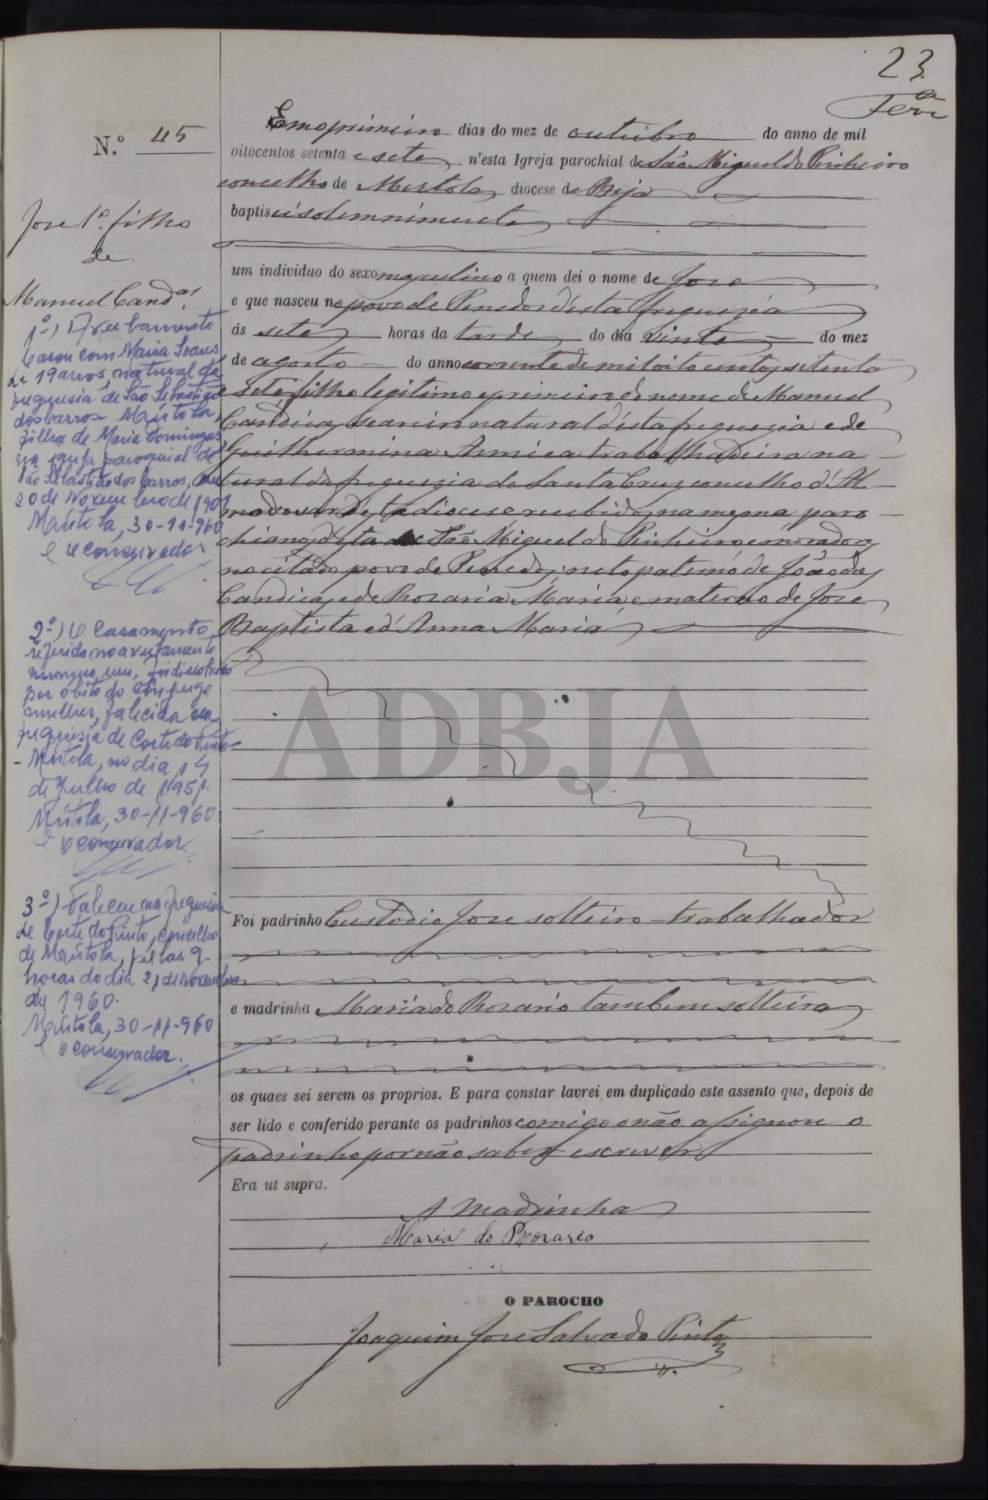 23
N.º 45
José 1.º filho
de
Manuel Cand.as
1º) Averbamento
Casou com Maria Soares
de 19 anos, natural da
freguesia de São Sebastião
dos Carros - Mértola,
filha de Maria Domingas
na igreja paroquial de
São Sebastião dos Carros, em
20 de Novembro de 1901
Mértola, 30-11-960
O conservador
2º) O casamento
referido no averbamento
número um, foi dissolvido
por óbito do cônjuge
mulher, falecida na
freguesia de Corte do Pinto
- Mértola, no dia 14
de Julho de 1951.
Mértola, 30-11-960
O conservador
3º) Faleceu na freguesia
de Corte do Pinto, concelho
de Mértola, pelas 9
horas do dia 21 de Novembro
de 1960.
Mértola, 30-11-960
O conservador.
Em o primeiro dias do mez de outubro do anno de mil
oitocentos setenta e sete, n'esta Igreja parochial de São Miguel do Pinheiro
concelho de Mertola, diocese de Beja
baptisei solemnimente
um individuo do sexo masculino a quem dei o nome de Jose
e que nasceu no povo de Penedos d'esta freguezia
ás sete horas da tarde do dia vinte do mez
de agosto do anno corrente de mil oito centos setenta
e sete, filho legitimo e primeiro do nome de Manuel
Candias, seareiro natural d'esta freguezia e de
Guilhermina Amica trabalhadeira na-
tural da freguezia de Santa Cruz concelho d'Al-
modovar d'esta diocese recebidos na mesma paro-
chianos d'esta de São Miguel do Pinheiro e moradores
no citado povo de Penedos; neto paterno de João da
Candias, e de Rosaria Maria, e materno de Jose
Baptista e d'Anna Maria
ADBJA
Foi padrinho Custodio Jose solteiro - trabalhador
e madrinha Maria do Rosario tambem solteira
os quaes sei serem os proprios. E para constar lavrei em duplicado este assento que, depois de
ser lido e conferido perante os padrinhos comigo e não assignou o
padrinho por não saber escrever
Era ut supra.
A madrinha
Maria do Rosario
O PAROCHO
Joaquim Jose Salvado Pinto